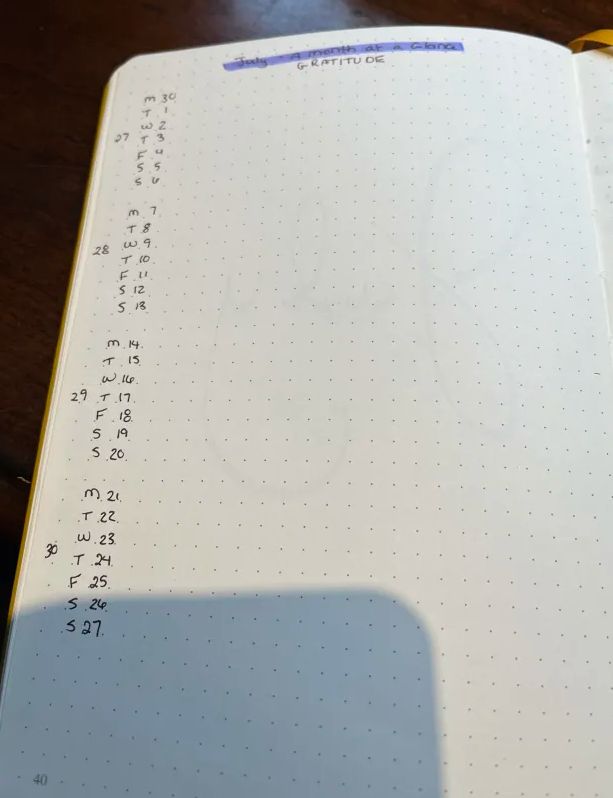 July - A month at a Glance
GRATITUDE
M 30
T 1
W 2
27 T 3
F 4
S 5
S 6
M 7
T 8
28 W 9
T 10
F 11
S 12
S 13
M 14
T 15
W 16
29 T 17
F 18
S 19
S 20
M 21
T 22
W 23
30 T 24
F 25
S 26
S 27
40